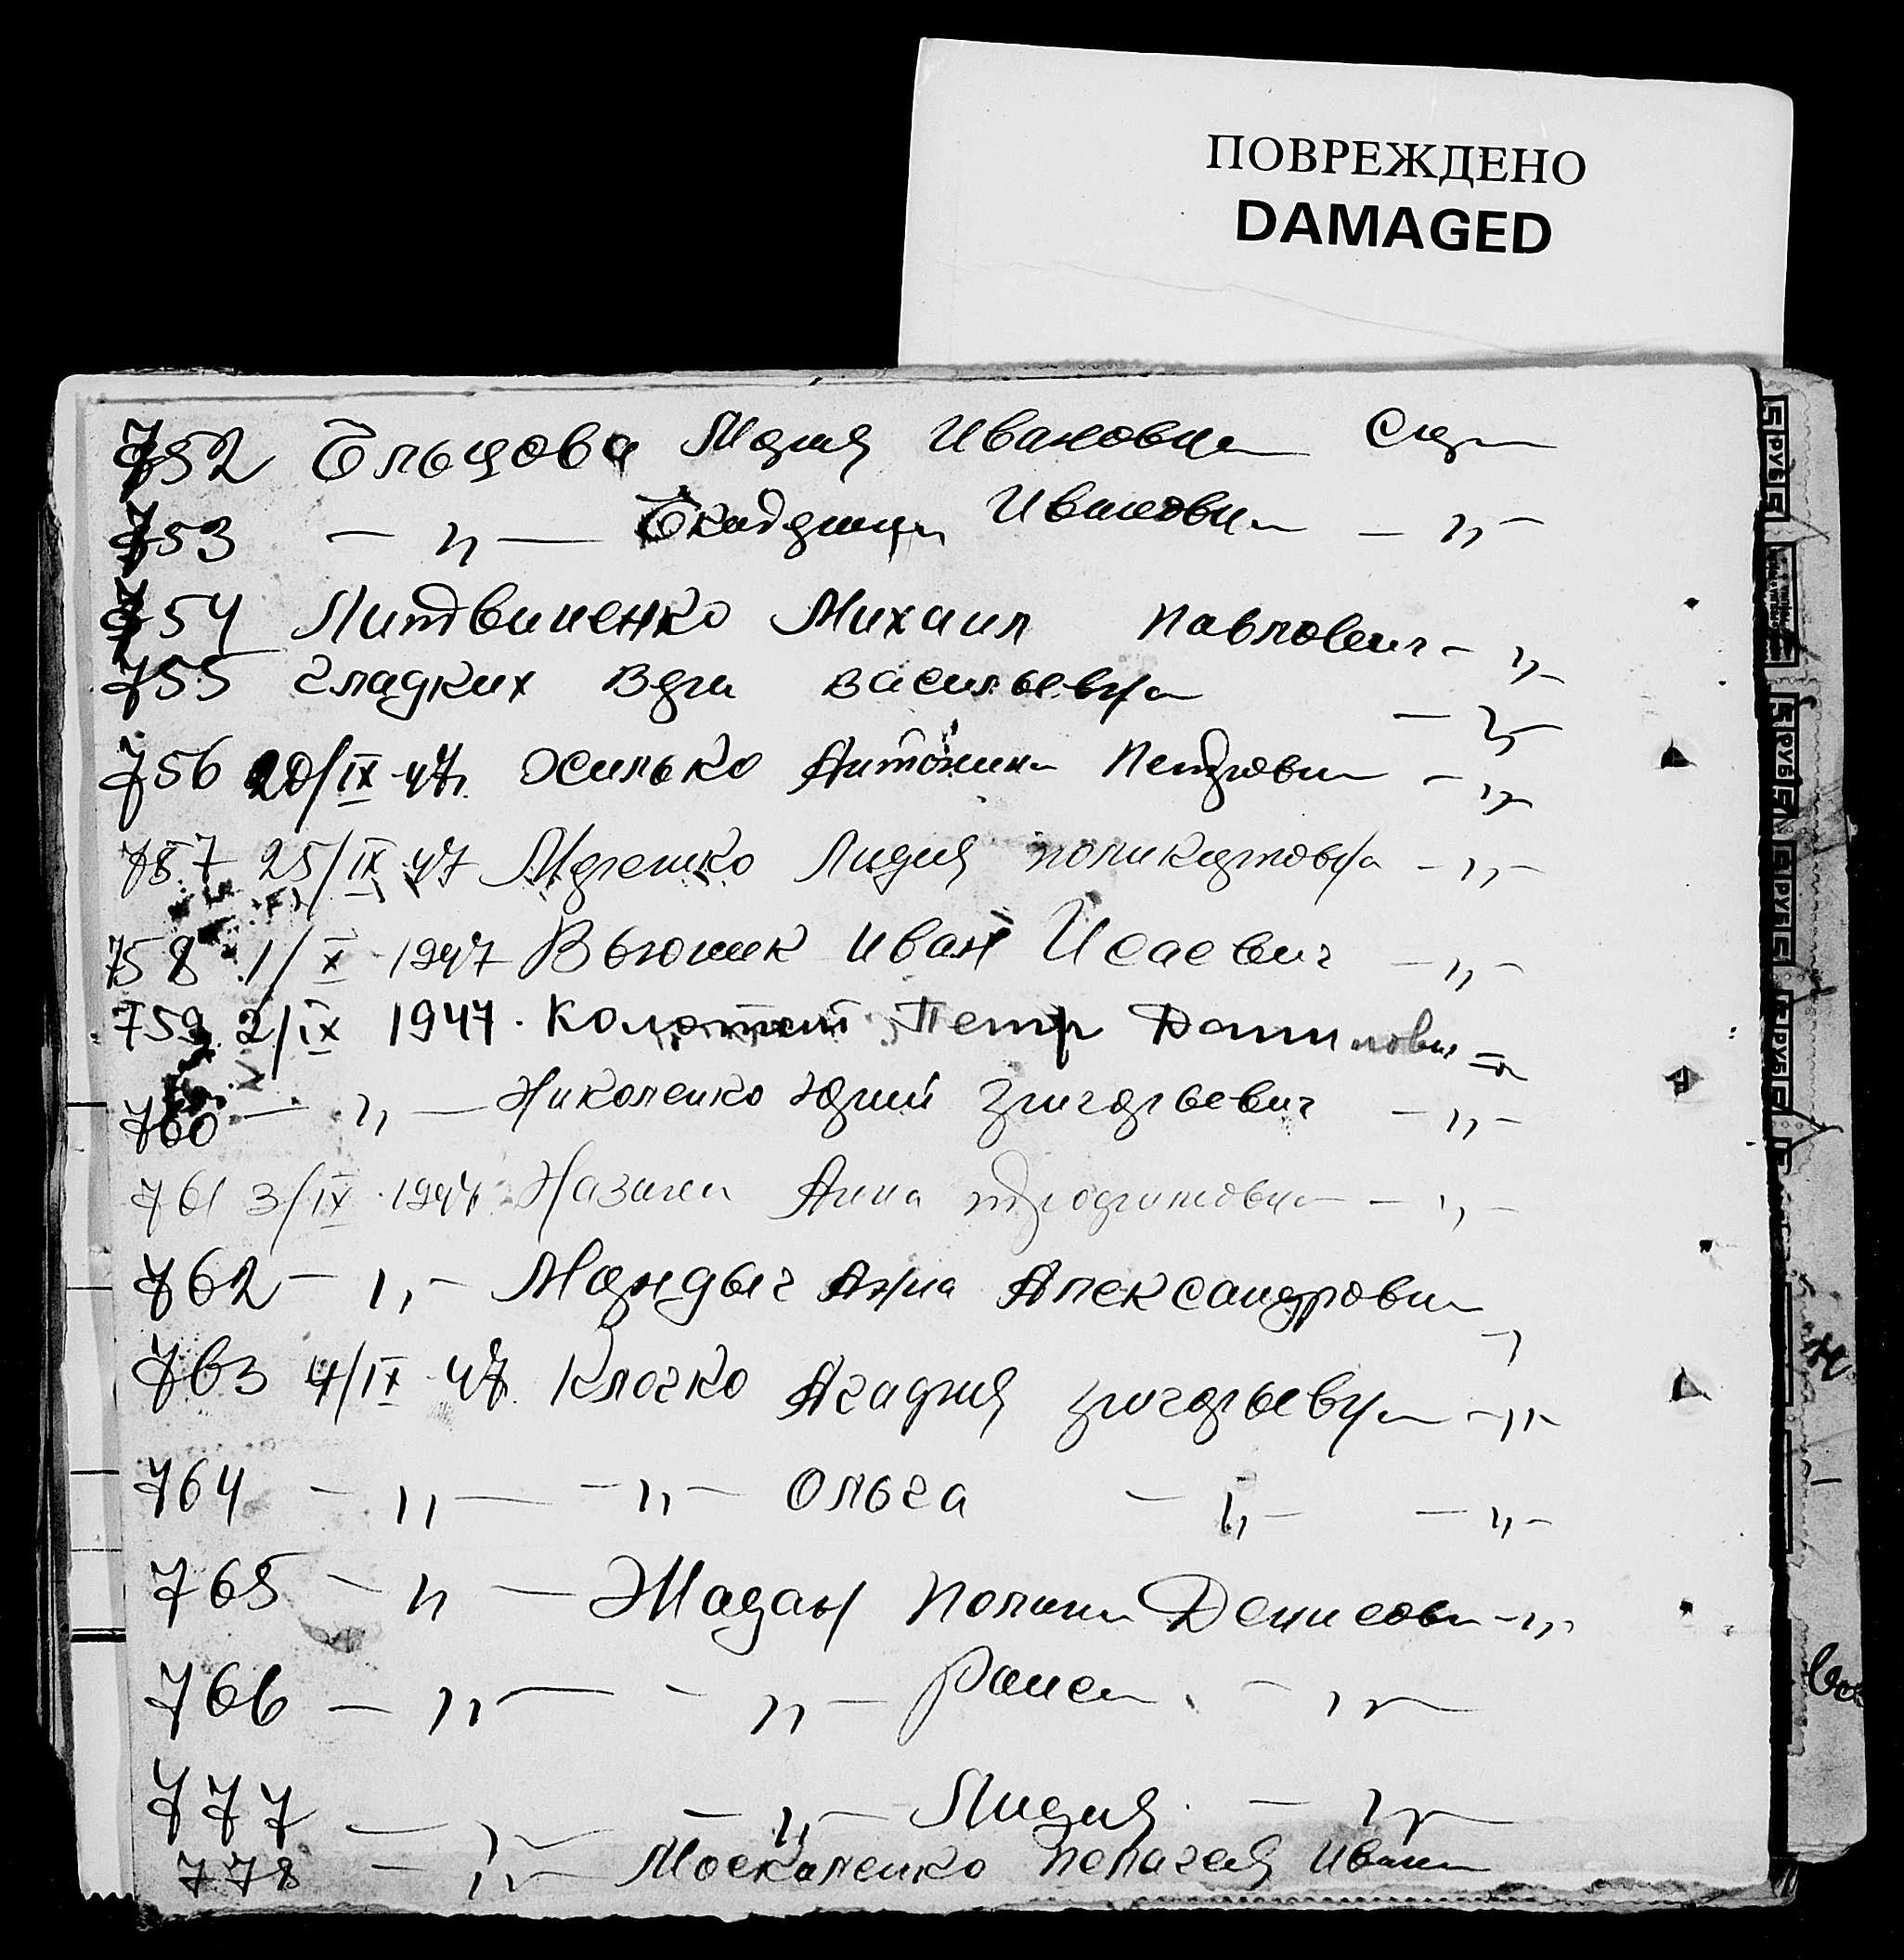 ПОВРЕЖДЕНО
DAMAGED
752 Ельцова Мария Ивановна
753 — „ — Екатерина Ивановна — „ —
754 Литвиненко Михаил Павлович — „ —
755 Гладких Вера Васильевна — „ —
756 20/IX 47г. Осилько Антонина Петровн — „ —
757 25/IX 47 Лидия Поликарповна — „ —
758 1/X 1947 Вьюник Иван Исаевич — „ —
759 2/IX 1947. Петр Данилович — „ —
760 — „ — Николенко Юрий Григорьевич — „ —
761 3/IX 1947 Анна — „ —
762 — „ — Мандыч Анна Александровн — „
763 4/IX 47. Клочко Агафия Григорьевна — „ —
764 — „ — — „ — Ольга — „ — — „ —
765 — „ — Жадан Полина Денисовн — „ —
766 — „ — — „ — Раиса — „ —
777 — „ — — „ — Лидия — „ —
778 — „ — Москаленко Пелагея Иван
РУБ РУБ РУБ РУБ